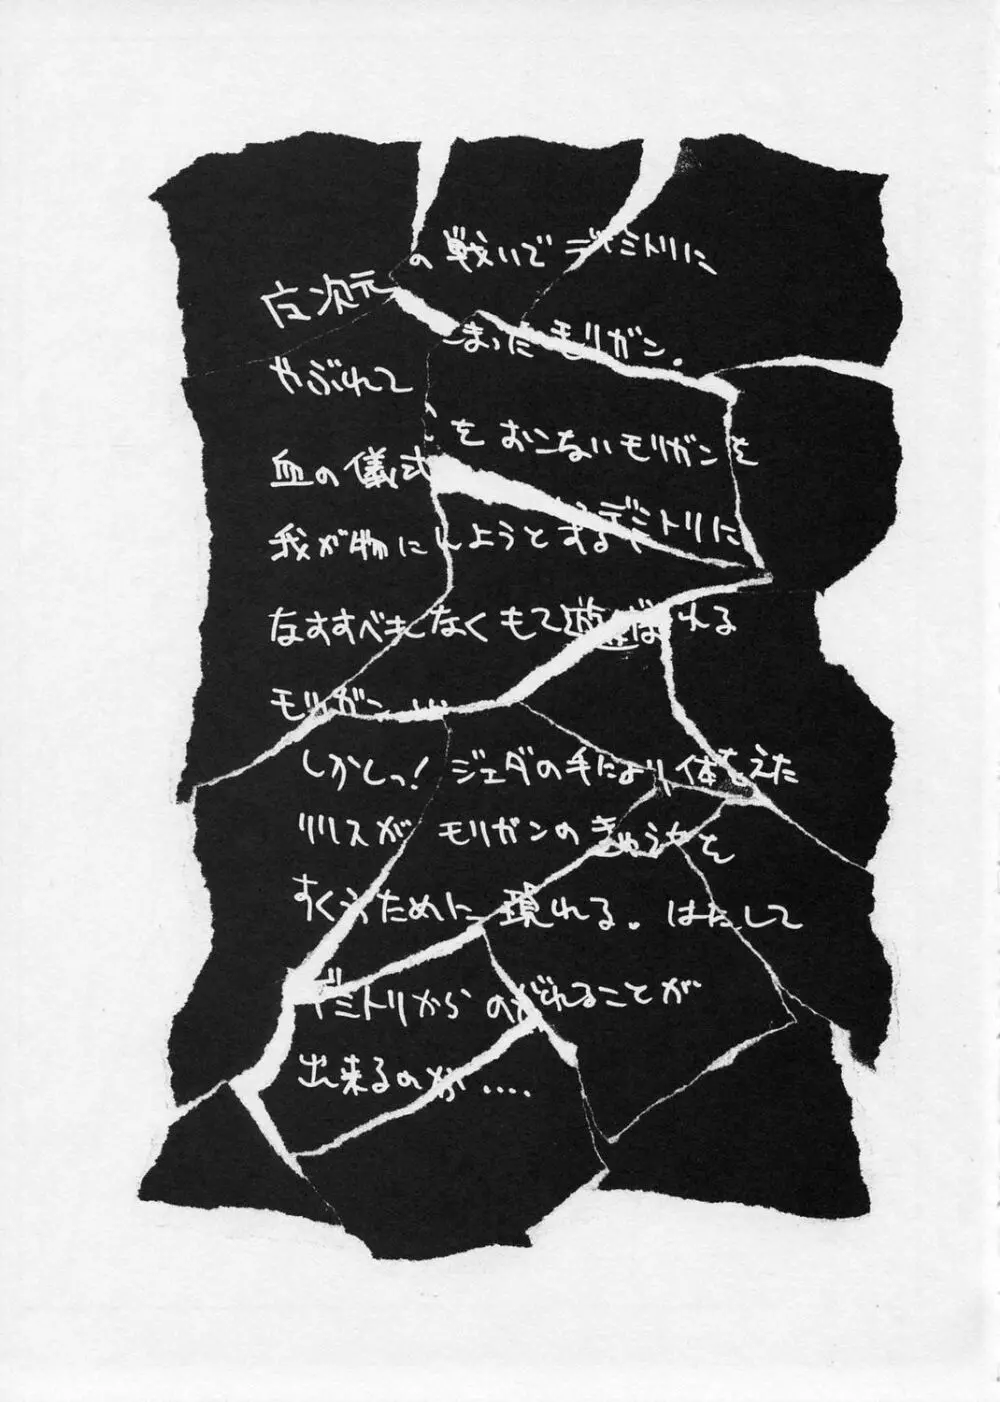 左次元の戦いでデミトリに
やぶれてしまったモリガン。
血の儀式をおこないモリガンを
我が物にしようとするデミトリに
なすすべもなくもて遊ばれる
モリガン……
しかしっ！ジェダの手により体をえた
リリスがモリガンのきゅうちを
すくうために現れる。はたして
デミトリからのがれることが
出来るのか....